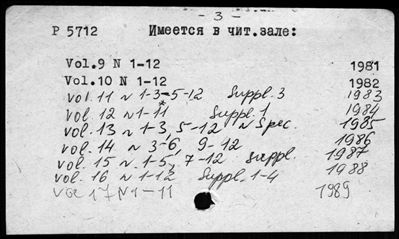 - 3 -
P 5712 Имеется в чит.зале:
Vol.9 N 1-12 1981
Vol.10 N 1-12 1982
vol. 11 N 1-3-5-12 Suppl. 3 1983
vol 12 N 1-11 Suppl. 1 1984
vol. 13 N 1-3, 5-12 N Spec. 1985
vol. 14 N 3-6, 9-12 1986
vol. 15 N 1-5, 7-12 Suppl. 1987
vol. 16 N 1-12 Suppl. 1-4 1988
vol 17 N 1-11 1989